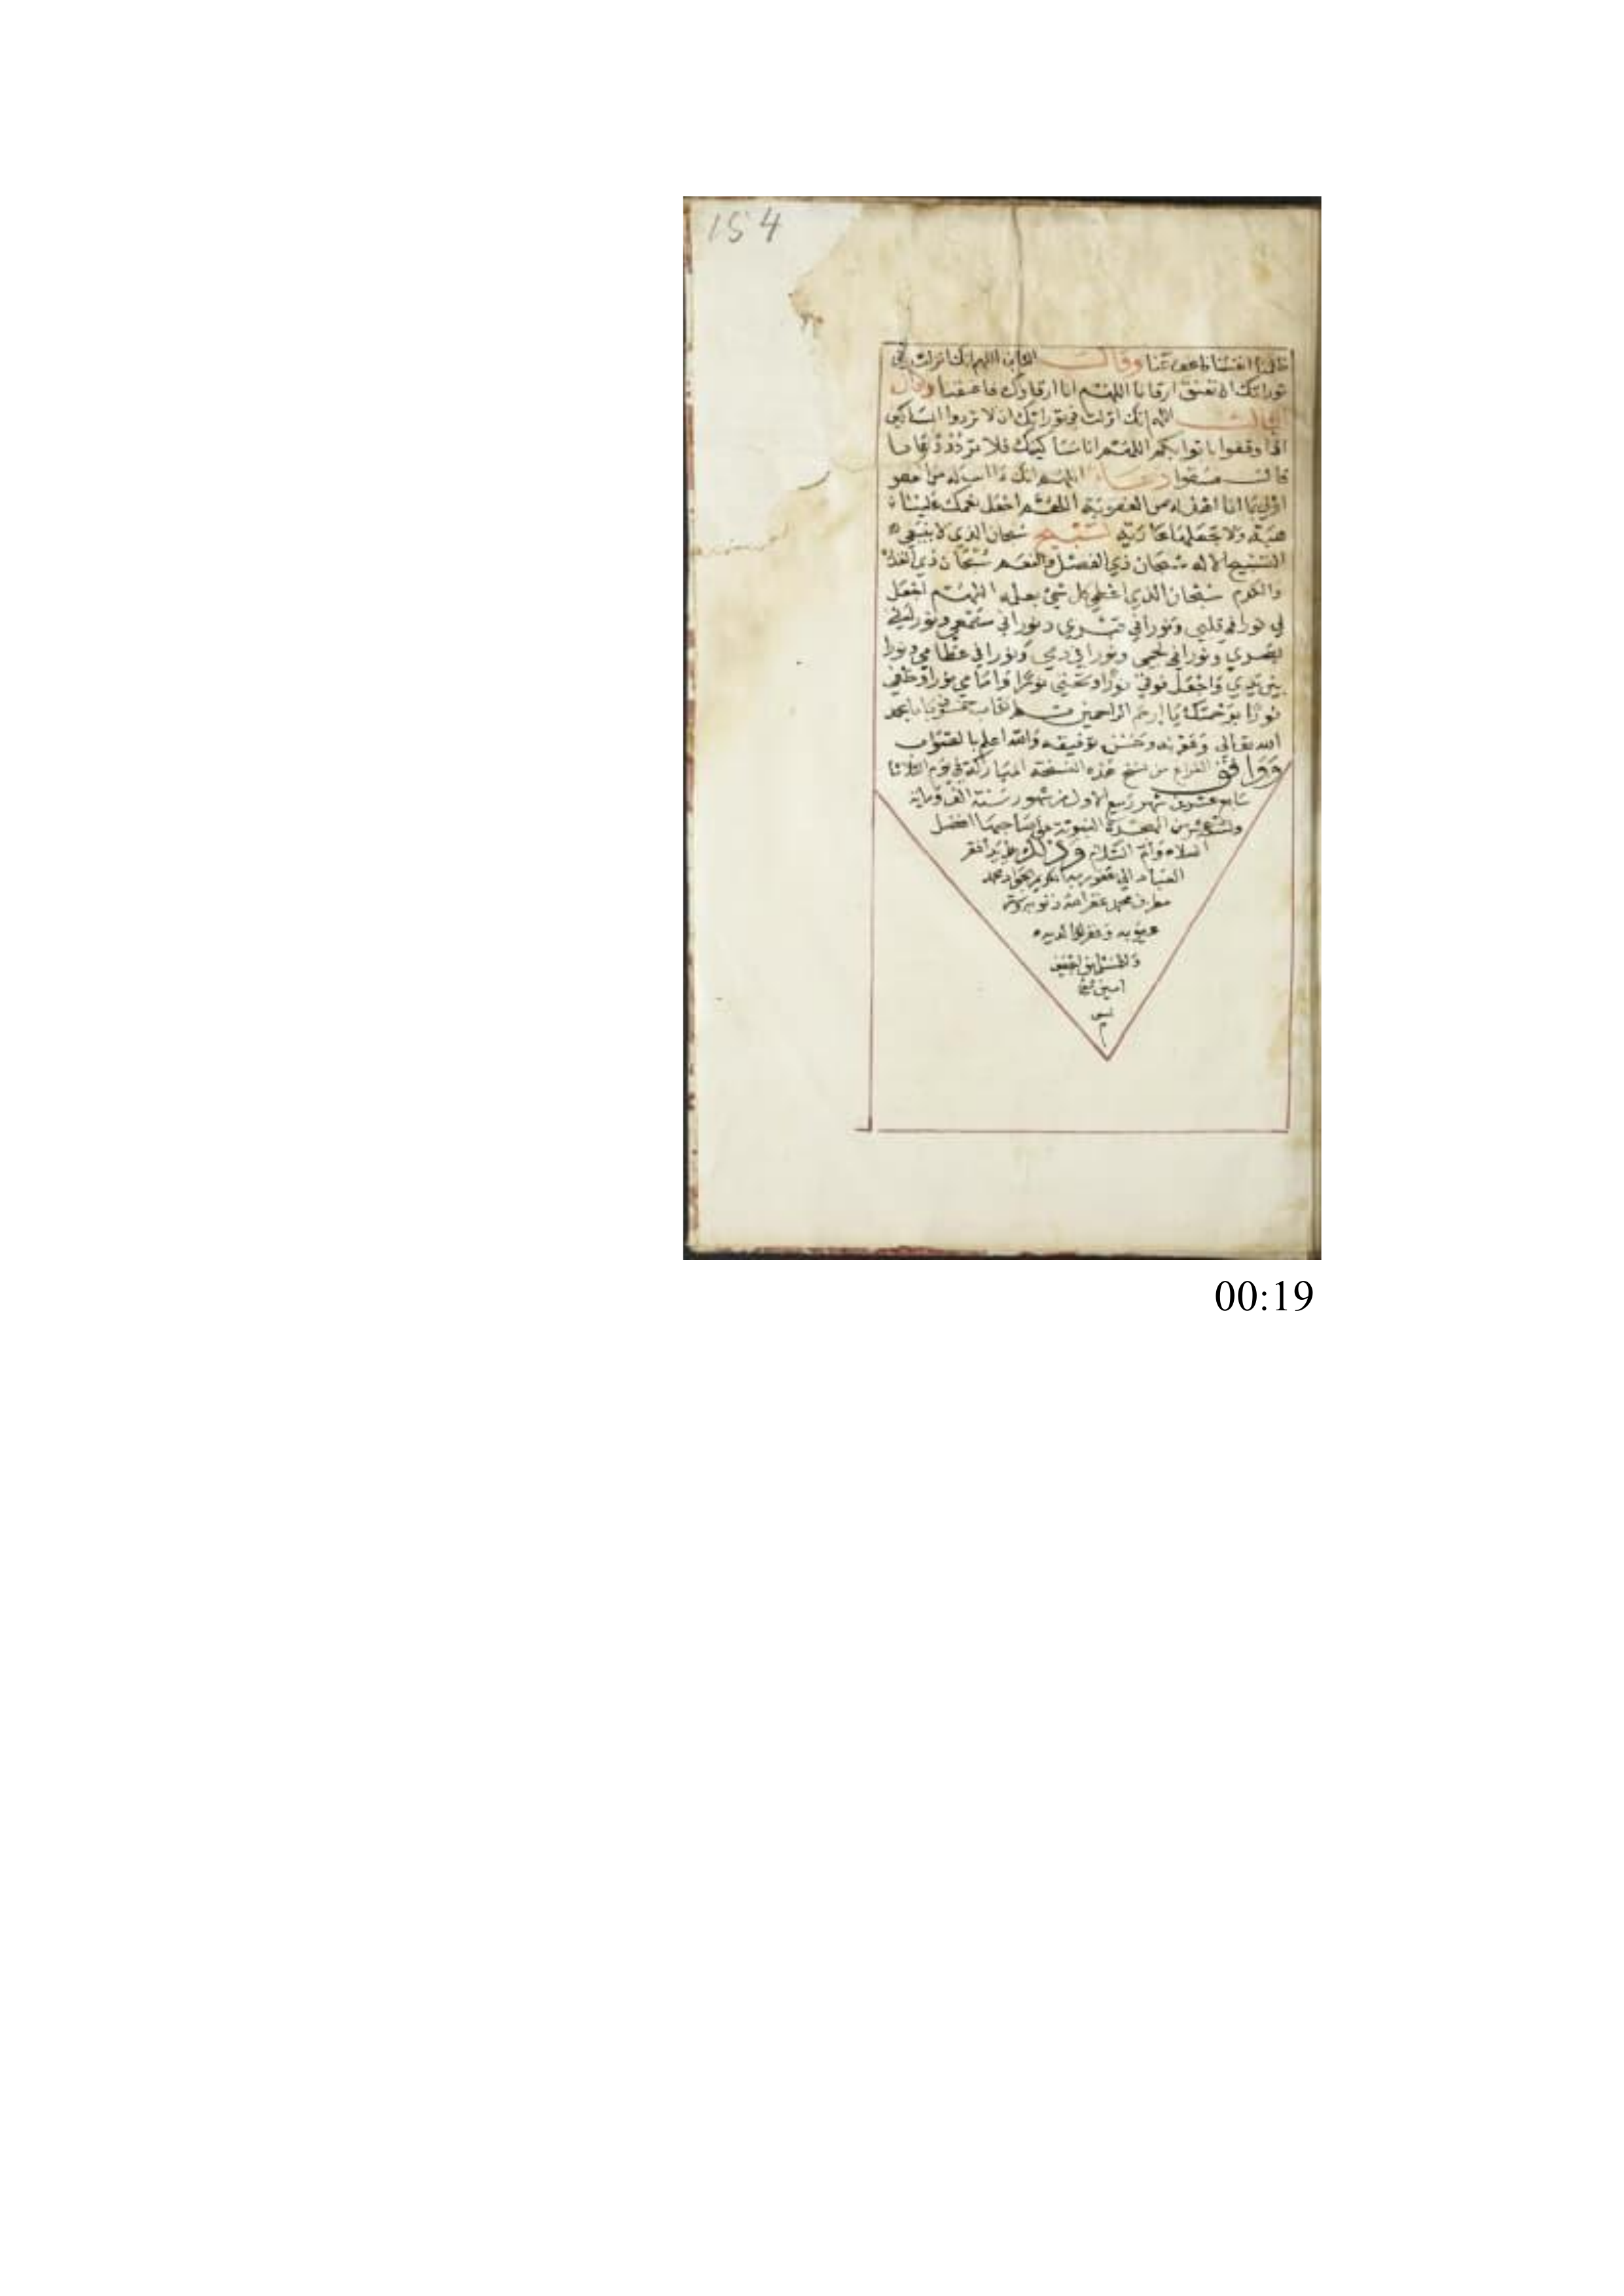 154
ظلمنا انفسنا فاعف عنا وقال الثاني اللهم انك انزلت في
توراتك ان نعتق ارقانا اللهم انا ارقاوك فاعتقنا وقال
الثالث اللهم انك انزلت في توراتك ان لا نردوا المساكين
اذا وقفوا بابوابكم اللهم انا مساكينك فلا ترد دعانا
قال فسقوا دعاء اللهم انك
من العقوبة اللهم اجعل نعمك علينا
هبة ولا تجعلها عارية تسبيح سبحان الذي لا ينبغي
التسبيح الا له سبحان ذي الفضل والنعم سبحان ذي
والكرم سبحان الذي احصى كل شي بعلمه اللهم اجعل
لي نورا في قلبي ونورا في قبري ونورا في سمعي ونورا في
بصري ونورا في لحمي ونورا في دمي ونورا في عظامي ونورا
بين يدي واجعل فوقي نورا وتحتي نورا وامامي نورا وخلفي
نورا برحمتك يا ارحم الراحمين تم كتاب بحمد
الله تعالى وعونه وحسن توفيقه والله اعلم بالصواب
ووافق الفراغ من نسخ هذه النسخة المباركة في يوم الثلاثا
سابع عشرين شهر ربيع الاول من شهور سنة الف ومايه
من الهجرة النبوية على صاحبها افضل
الصلاه واتم السلام وذلك على يد افقر
العباد الى عفو ربه الكريم الجواد محمد
محمد غفر الله ذنوبه وستر
عيوبه وغفر لوالديه
والمسلمين اجمعين
امين